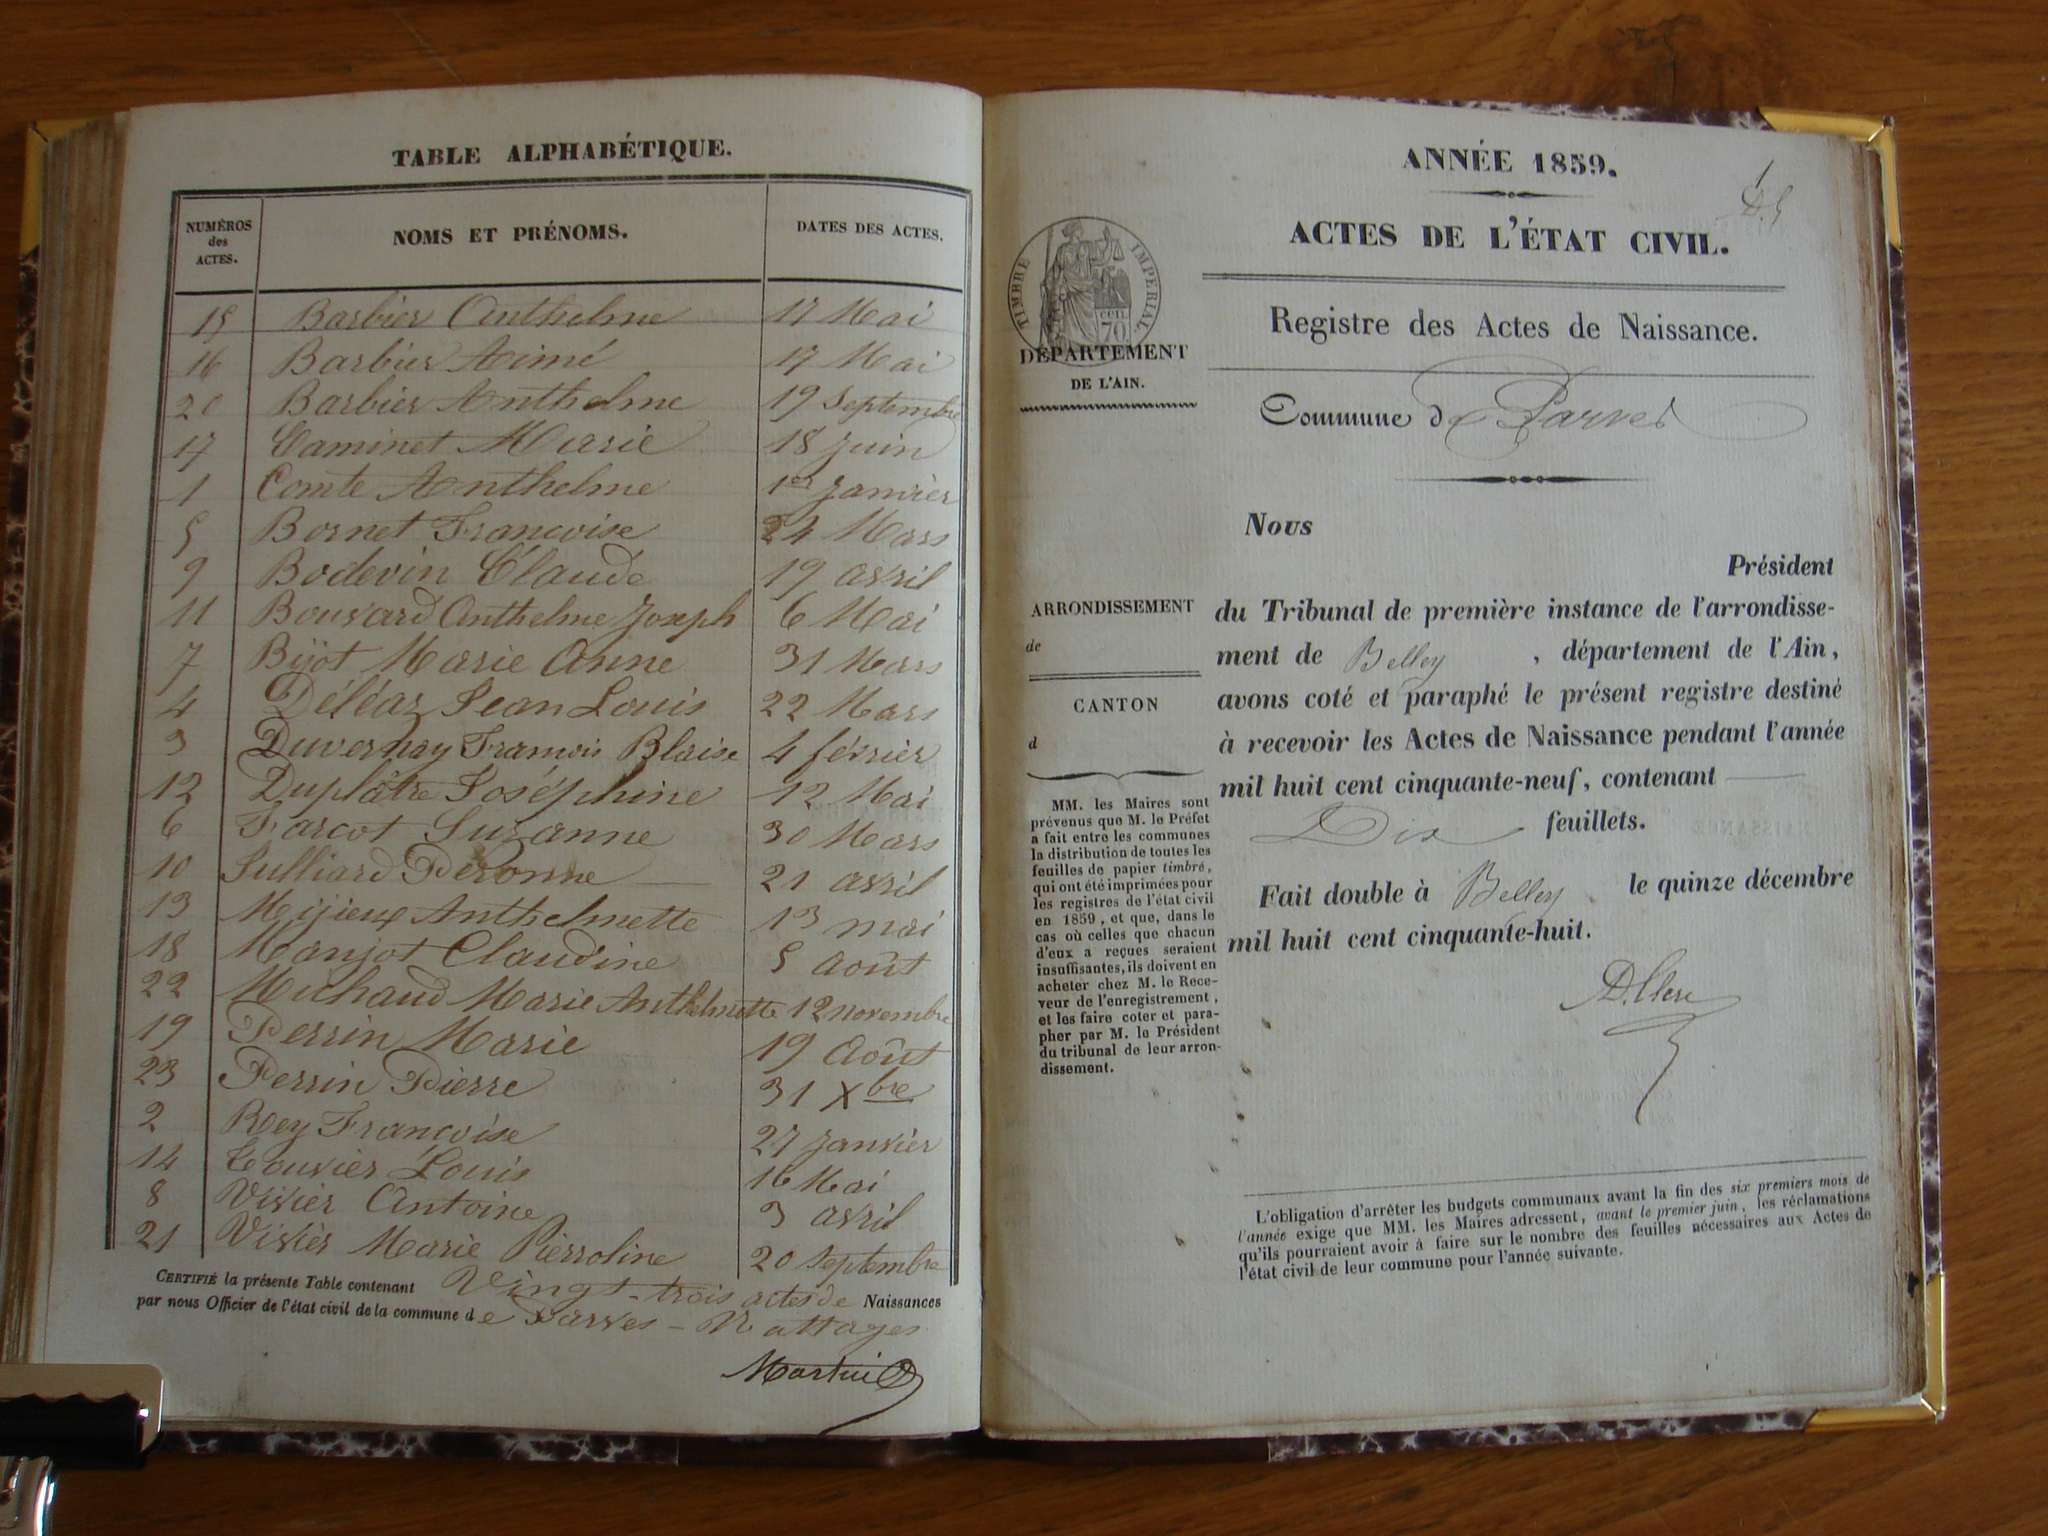 TABLE ALPHABÉTIQUE.
NUMÉROS des ACTES. NOMS ET PRÉNOMS. DATES DES ACTES.
15 Barbier Anthelme 17 Mai
16 Barbier Aimé 17 Mai
20 Barbier Anthelme 19 Septembre
17 Caminet Marie 18 juin
1 Comte Anthelme 1er Janvier
5 Bornet Francoise 24 Mars
9 Bodevin Claude 19 avril
11 Bouvard Anthelme Joseph 6 Mai
7 Bijot Marie Anne 31 Mars
4 Déléaz Jean Louis 22 Mars
3 Duvernay Francois Blaise 4 février
12 Duplâtre Joséphine 12 Mai
6 Farcot Suzanne 30 Mars
10 Julliard Péronne 21 avril
13 Mijieux Anthelmette 13 mai
18 Manjot Claudine 5 Août
22 Michaud Marie Anthelmette 12 novembre
19 Perrin Marie 19 Août
23 Perrin Pierre 31 Xbre
2 Rey Francoise 27 janvier
14 Touvier Louis 16 Mai
8 Vivier Antoine 3 avril
21 Vivier Marie Pierroline 20 Septembre
CERTIFIÉ la présente Table contenant Vingt-trois actes de Naissances
par nous Officier de l'état civil de la commune de Parves - Nattages
ANNÉE 1859.
1
ACTES DE L'ÉTAT CIVIL.
TIMBRE IMPÉRIAL
CEN. 70
Registre des Actes de Naissance.
DÉPARTEMENT
DE L'AIN.
Commune de Parves
Nous
Président
du Tribunal de première instance de l'arrondisse-
ment de Belley , département de l'Ain,
avons coté et paraphé le présent registre destiné
à recevoir les Actes de Naissance pendant l'année
mil huit cent cinquante-neuf, contenant
Dix feuillets.
Fait double à Belley le quinze décembre
mil huit cent cinquante-huit.
ARRONDISSEMENT
de
CANTON
d
MM. les Maires sont
prévenus que M. le Préfet
a fait entre les communes
la distribution de toutes les
feuilles de papier timbré,
qui ont été imprimées pour
les registres de l'état civil
en 1859, et que, dans le
cas où celles que chacun
d'eux a reçues seraient
insuffisantes, ils doivent en
acheter chez M. le Rece-
veur de l'enregistrement,
et les faire coter et para-
pher par M. le Président
du tribunal de leur arron-
dissement.
L'obligation d'arrêter les budgets communaux avant la fin des six premiers mois de
l'année exige que MM. les Maires adressent, avant le premier juin, les réclamations
qu'ils pourraient avoir à faire sur le nombre des feuilles nécessaires aux Actes de
l'état civil de leur commune pour l'année suivante.